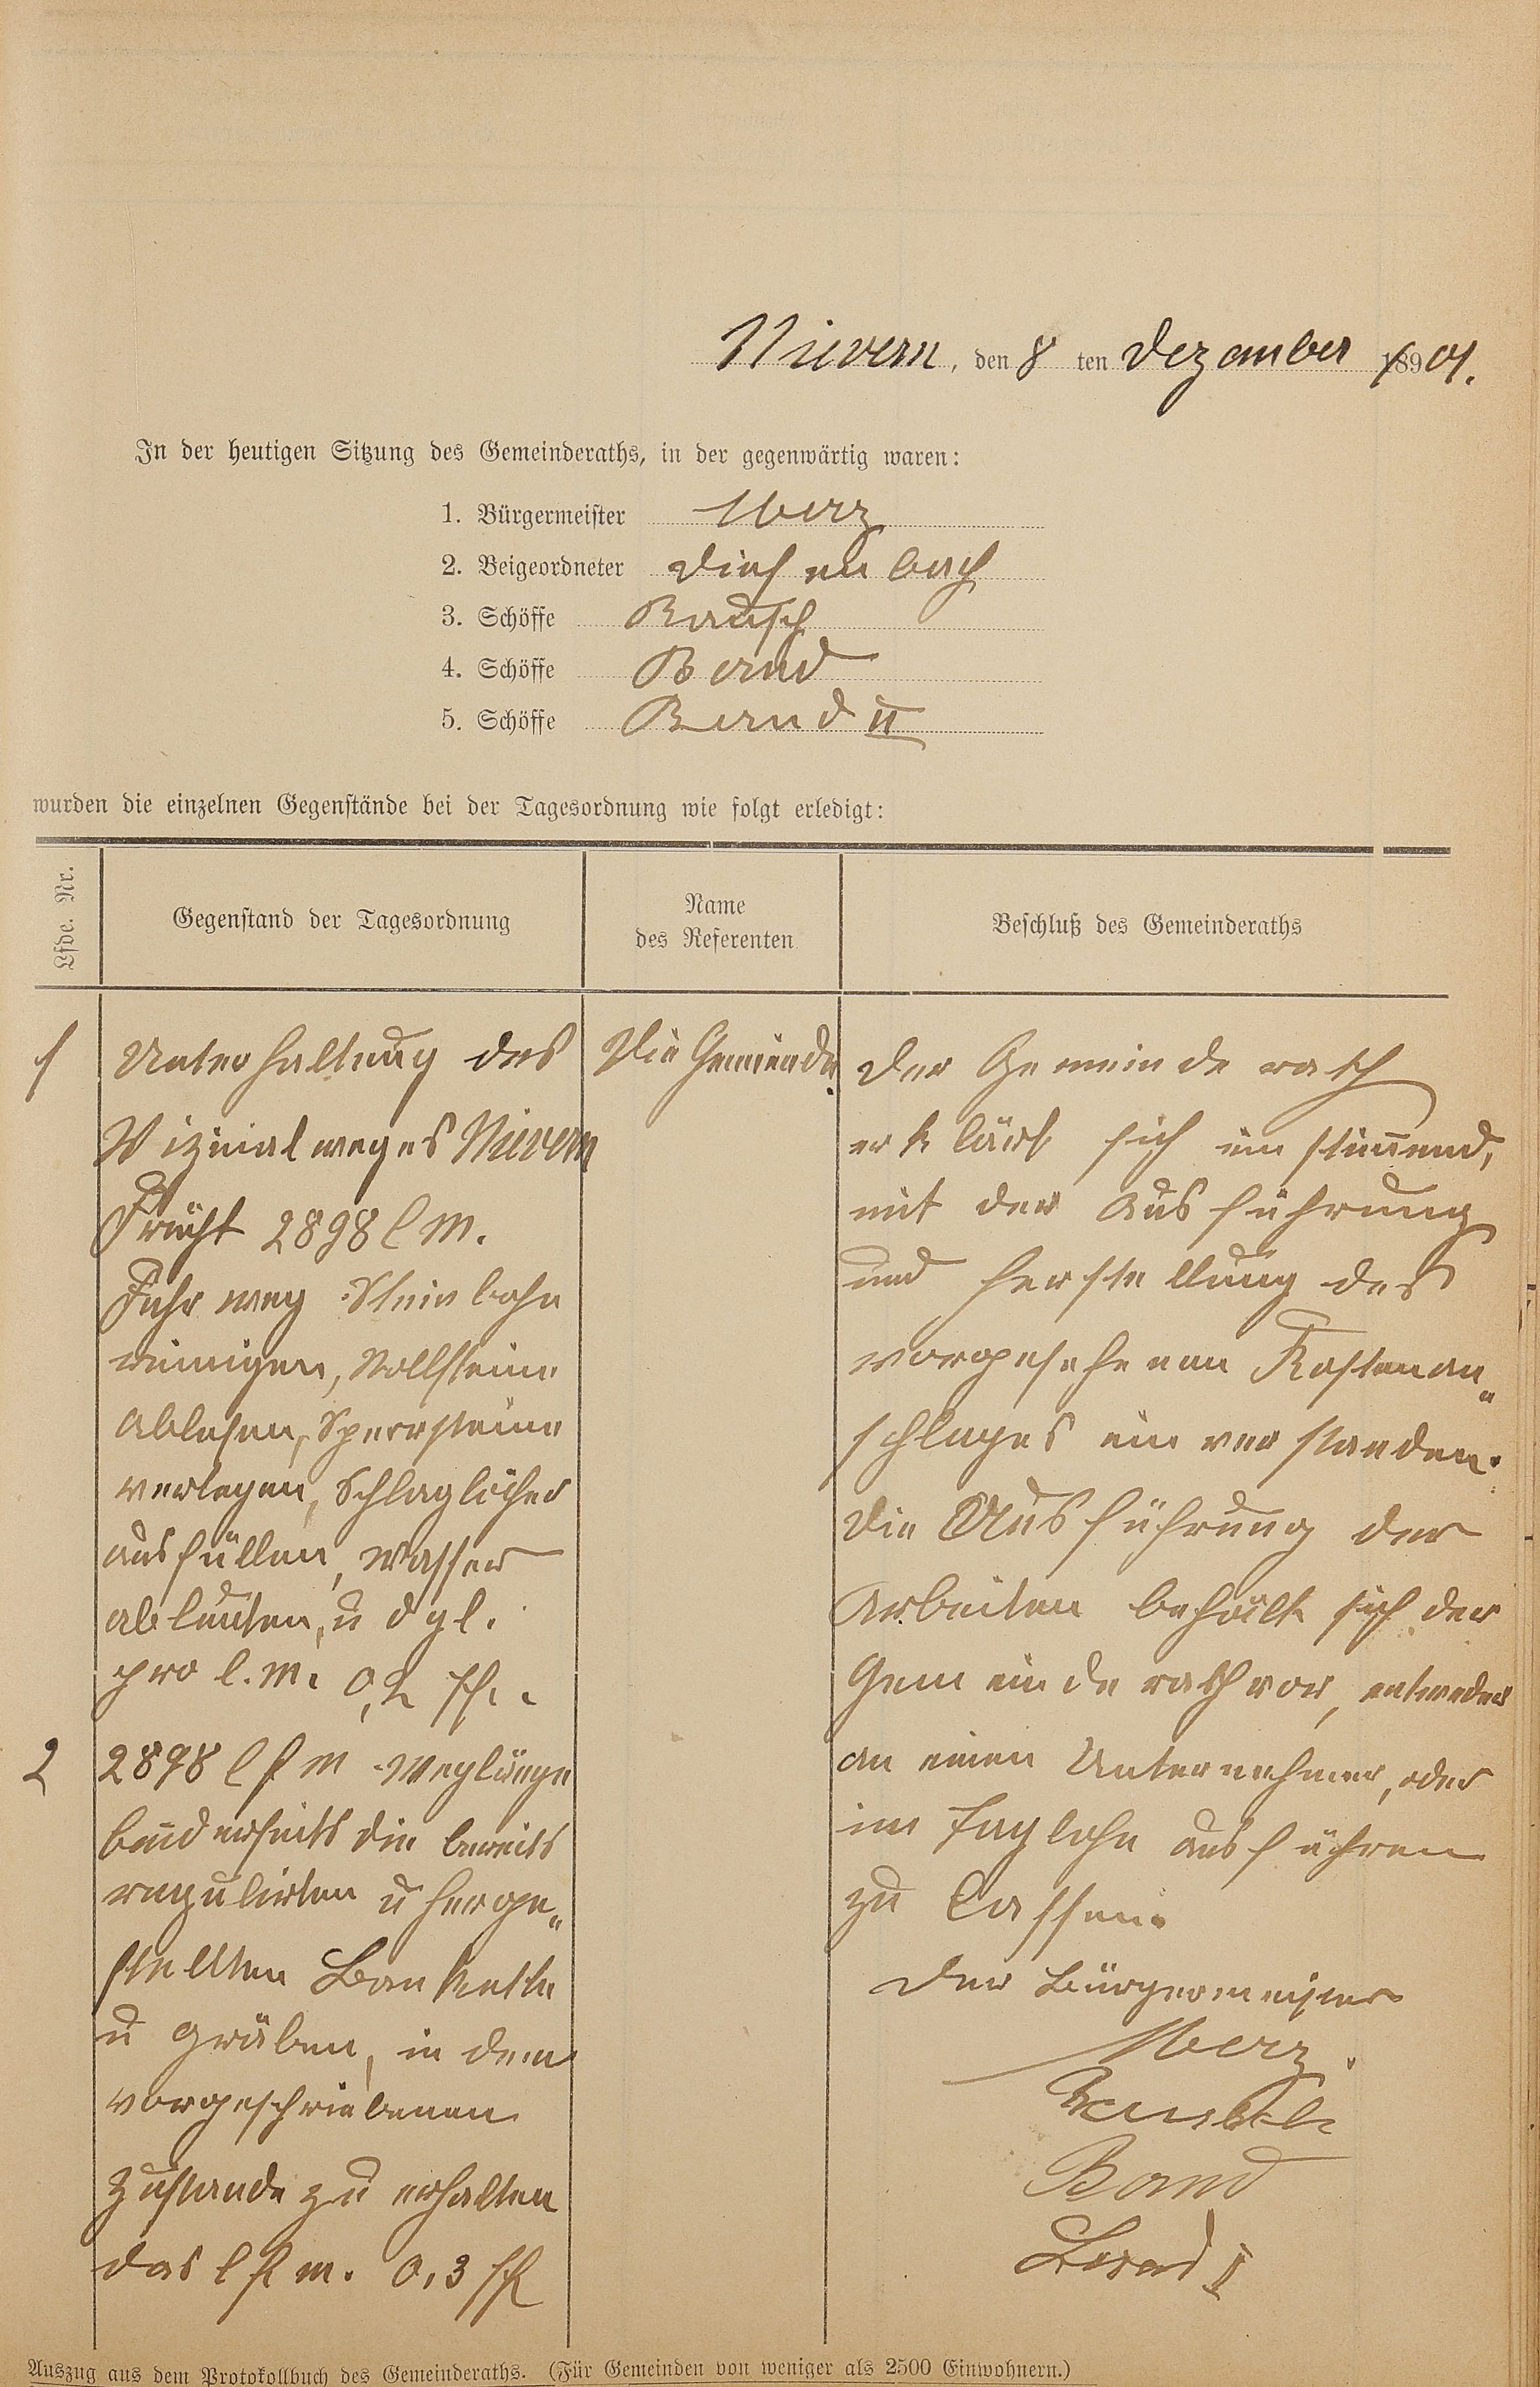 Nievern, den 8 ten Dezember 1901.
In der heutigen Sitzung des Gemeinderaths, in der gegenwärtig waren:
1. Bürgermeister Merz
2. Beigeordneter Diefenbach
3. Schöffe Rausch
4. Schöffe Bernd
5. Schöffe Bernd II
wurden die einzelnen Gegenstände bei der Tagesordnung wie folgt erledigt:
Lfde. Nr.
Gegenstand der Tagesordnung
Name
des Referenten
Beschluß des Gemeinderaths
1
Unterhaltung des
Vizinalweges Nievern
Frücht 2898 l M.
Fahrweg Steinbahn
reinigen, Rollsteine
Ablesen, Sperrsteine
verlegen, Schlaglöcher
ausfüllen, Wasser
ableiten, u dgl.
pro l. M. 0,2 Pf.
2
2898 lf m Weglänge
beiderseits die bereits
regulirten u herge„
stellten Bankette
u Gräben, in dem
vorgeschriebenen
Zustande zu erhalten
das lf m. 0,3 Pf
Die Gemeinde.
Der Gemeinderath
erklärt sich einstimmend,
mit der Ausführung
und Herstellung des
vorgesehenen Kostenan„
schlages einverstanden.
Die Ausführung der
Arbeiten behält sich der
Gemeinderath vor, entweder
an einen Unternehmer, oder
im Taglohn ausführen
zu lassen.
Der Bürgermeister
Merz.
Bernd
Bernd II
Auszug aus dem Protokollbuch des Gemeinderaths. (Für Gemeinden von weniger als 2500 Einwohnern.)